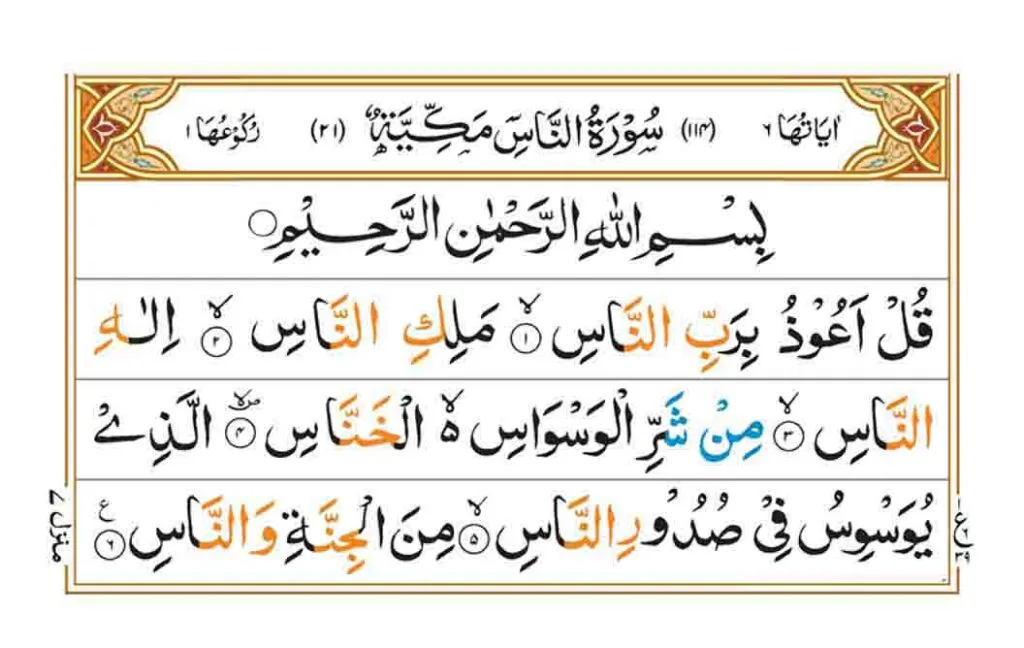 اٰيَاتُهَا ٦ (١١٤) سُوْرَةُ النَّاسِ مَكِّيَّةٌ (٢١) رُكُوْعُهَا ١
بِسْمِ اللهِ الرَّحْمٰنِ الرَّحِيْمِ ○
قُلْ اَعُوْذُ بِرَبِّ النَّاسِ ۙ﴿١﴾ مَلِكِ النَّاسِ ۙ﴿٢﴾ اِلٰهِ
النَّاسِ ۙ﴿٣﴾ مِنْ شَرِّ الْوَسْوَاسِ ۵ۙ الْخَنَّاسِ ﴿٤﴾ الَّذِيْ
يُوَسْوِسُ فِيْ صُدُوْرِ النَّاسِ ۙ﴿٥﴾ مِنَ الْجِنَّةِ وَالنَّاسِ ﴿٦﴾ ع
منزل ٧
ع
٣٩